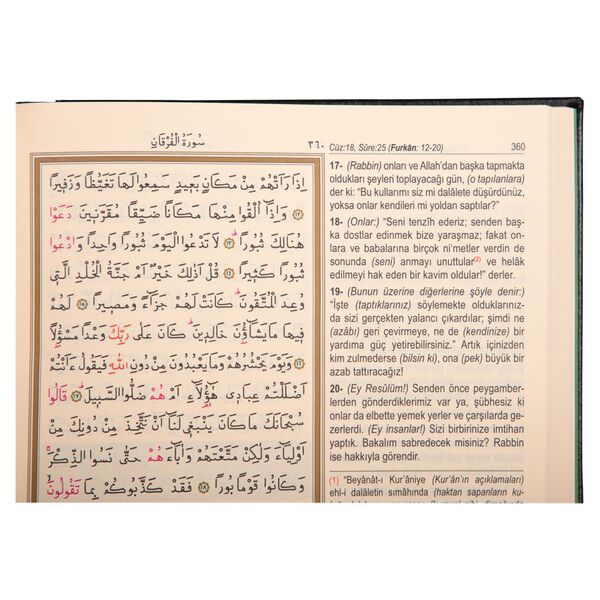 سُورَةُ الْفُرْقَانِ
٣٦٠
اِذَا رَاَتْهُمْ مِنْ مَكَانٍ بَع۪يدٍ سَمِعُوا لَهَا تَغَيُّظًا وَزَف۪يرًا
﴿١٢﴾ وَاِذَٓا اُلْقُوا مِنْهَا مَكَانًا ضَيِّقًا مُقَرَّن۪ينَ دَعَوْا
هُنَالِكَ ثُبُورًا ﴿١٣﴾ لَا تَدْعُوا الْيَوْمَ ثُبُورًا وَاحِدًا وَادْعُوا
ثُبُورًا كَث۪يرًا ﴿١٤﴾ قُلْ اَذٰلِكَ خَيْرٌ اَمْ جَنَّةُ الْخُلْدِ الَّت۪ي
وُعِدَ الْمُتَّقُونَ كَانَتْ لَهُمْ جَزَٓاءً وَمَص۪يرًا ﴿١٥﴾ لَهُمْ
ف۪يهَا مَا يَشَٓاؤُ۫نَ خَالِد۪ينَ كَانَ عَلٰى رَبِّكَ وَعْدًا مَسْؤُ۫لًا
﴿١٦﴾ وَيَوْمَ يَحْشُرُهُمْ وَمَا يَعْبُدُونَ مِنْ دُونِ اللّٰهِ فَيَقُولُ ءَاَنْتُمْ
اَضْلَلْتُمْ عِبَاد۪ي هٰٓؤُ۬لَٓاءِ اَمْ هُمْ ضَلُّوا السَّب۪يلَ ﴿١٧﴾ قَالُوا
سُبْحَانَكَ مَا كَانَ يَنْبَغ۪ي لَنَٓا اَنْ نَتَّخِذَ مِنْ دُونِكَ مِنْ
اَوْلِيَٓاءَ وَلٰكِنْ مَتَّعْتَهُمْ وَاٰبَٓاءَهُمْ حَتّٰى نَسُوا الذِّكْرَ
وَكَانُوا قَوْمًا بُورًا ﴿١٨﴾ فَقَدْ كَذَّبُوكُمْ بِمَا تَقُولُونَ
Cüz:18, Sûre:25 (Furkân: 12-20) 360
17- (Rabbin) onları ve Allah'dan başka tapmakta
oldukları şeyleri toplayacağı gün, (o tapılanlara)
der ki: “Bu kullarımı siz mi dalâlete düşürdünüz,
yoksa onlar kendileri mi yoldan saptılar?”
18- (Onlar:) “Seni tenzîh ederiz; senden baş-
ka dostlar edinmek bize yaraşmaz; fakat on-
lara ve babalarına birçok ni‘metler verdin de
sonunda (seni) anmayı unuttular(2) ve helâk
edilmeyi hak eden bir kavim oldular!” derler.
19- (Bunun üzerine diğerlerine şöyle denir:)
“İşte (taptıklarınız) söylemekte olduklarınız-
da sizi gerçekten yalancı çıkardılar; şimdi ne
(azâbı) geri çevirmeye, ne de (kendinize) bir
yardıma güç yetirebilirsiniz.” Artık içinizden
kim zulmederse (bilsin ki), ona (pek) büyük bir
azab tattıracağız!
20- (Ey Resûlüm!) Senden önce peygamber-
lerden gönderdiklerimiz var ya, şübhesiz ki
onlar da elbette yemek yerler ve çarşılarda ge-
zerlerdi. (Ey insanlar!) Sizi birbirinize imtihan
yaptık. Bakalım sabredecek misiniz? Rabbin
ise hakkıyla görendir.
(1) “Beyânât-ı Kur'âniye (Kur'ân'ın açıklamaları)
ehl-i dalâletin sımâhında (haktan sapanların ku-